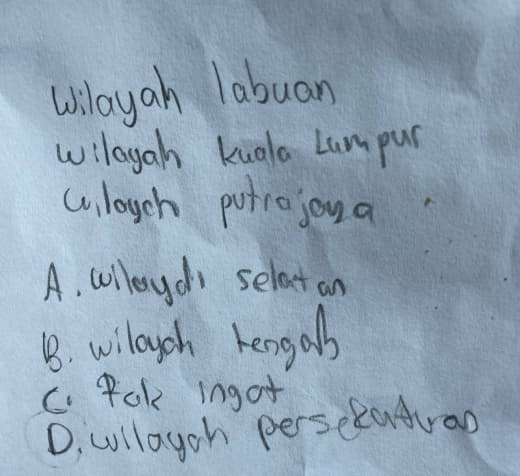 Wilayah labuan
wilayah kuala Lumpur
wilayah putrajaya
A. wilayah selatan
B. wilayah tengah
C. Tak ingat
D. wilayah persekutuan